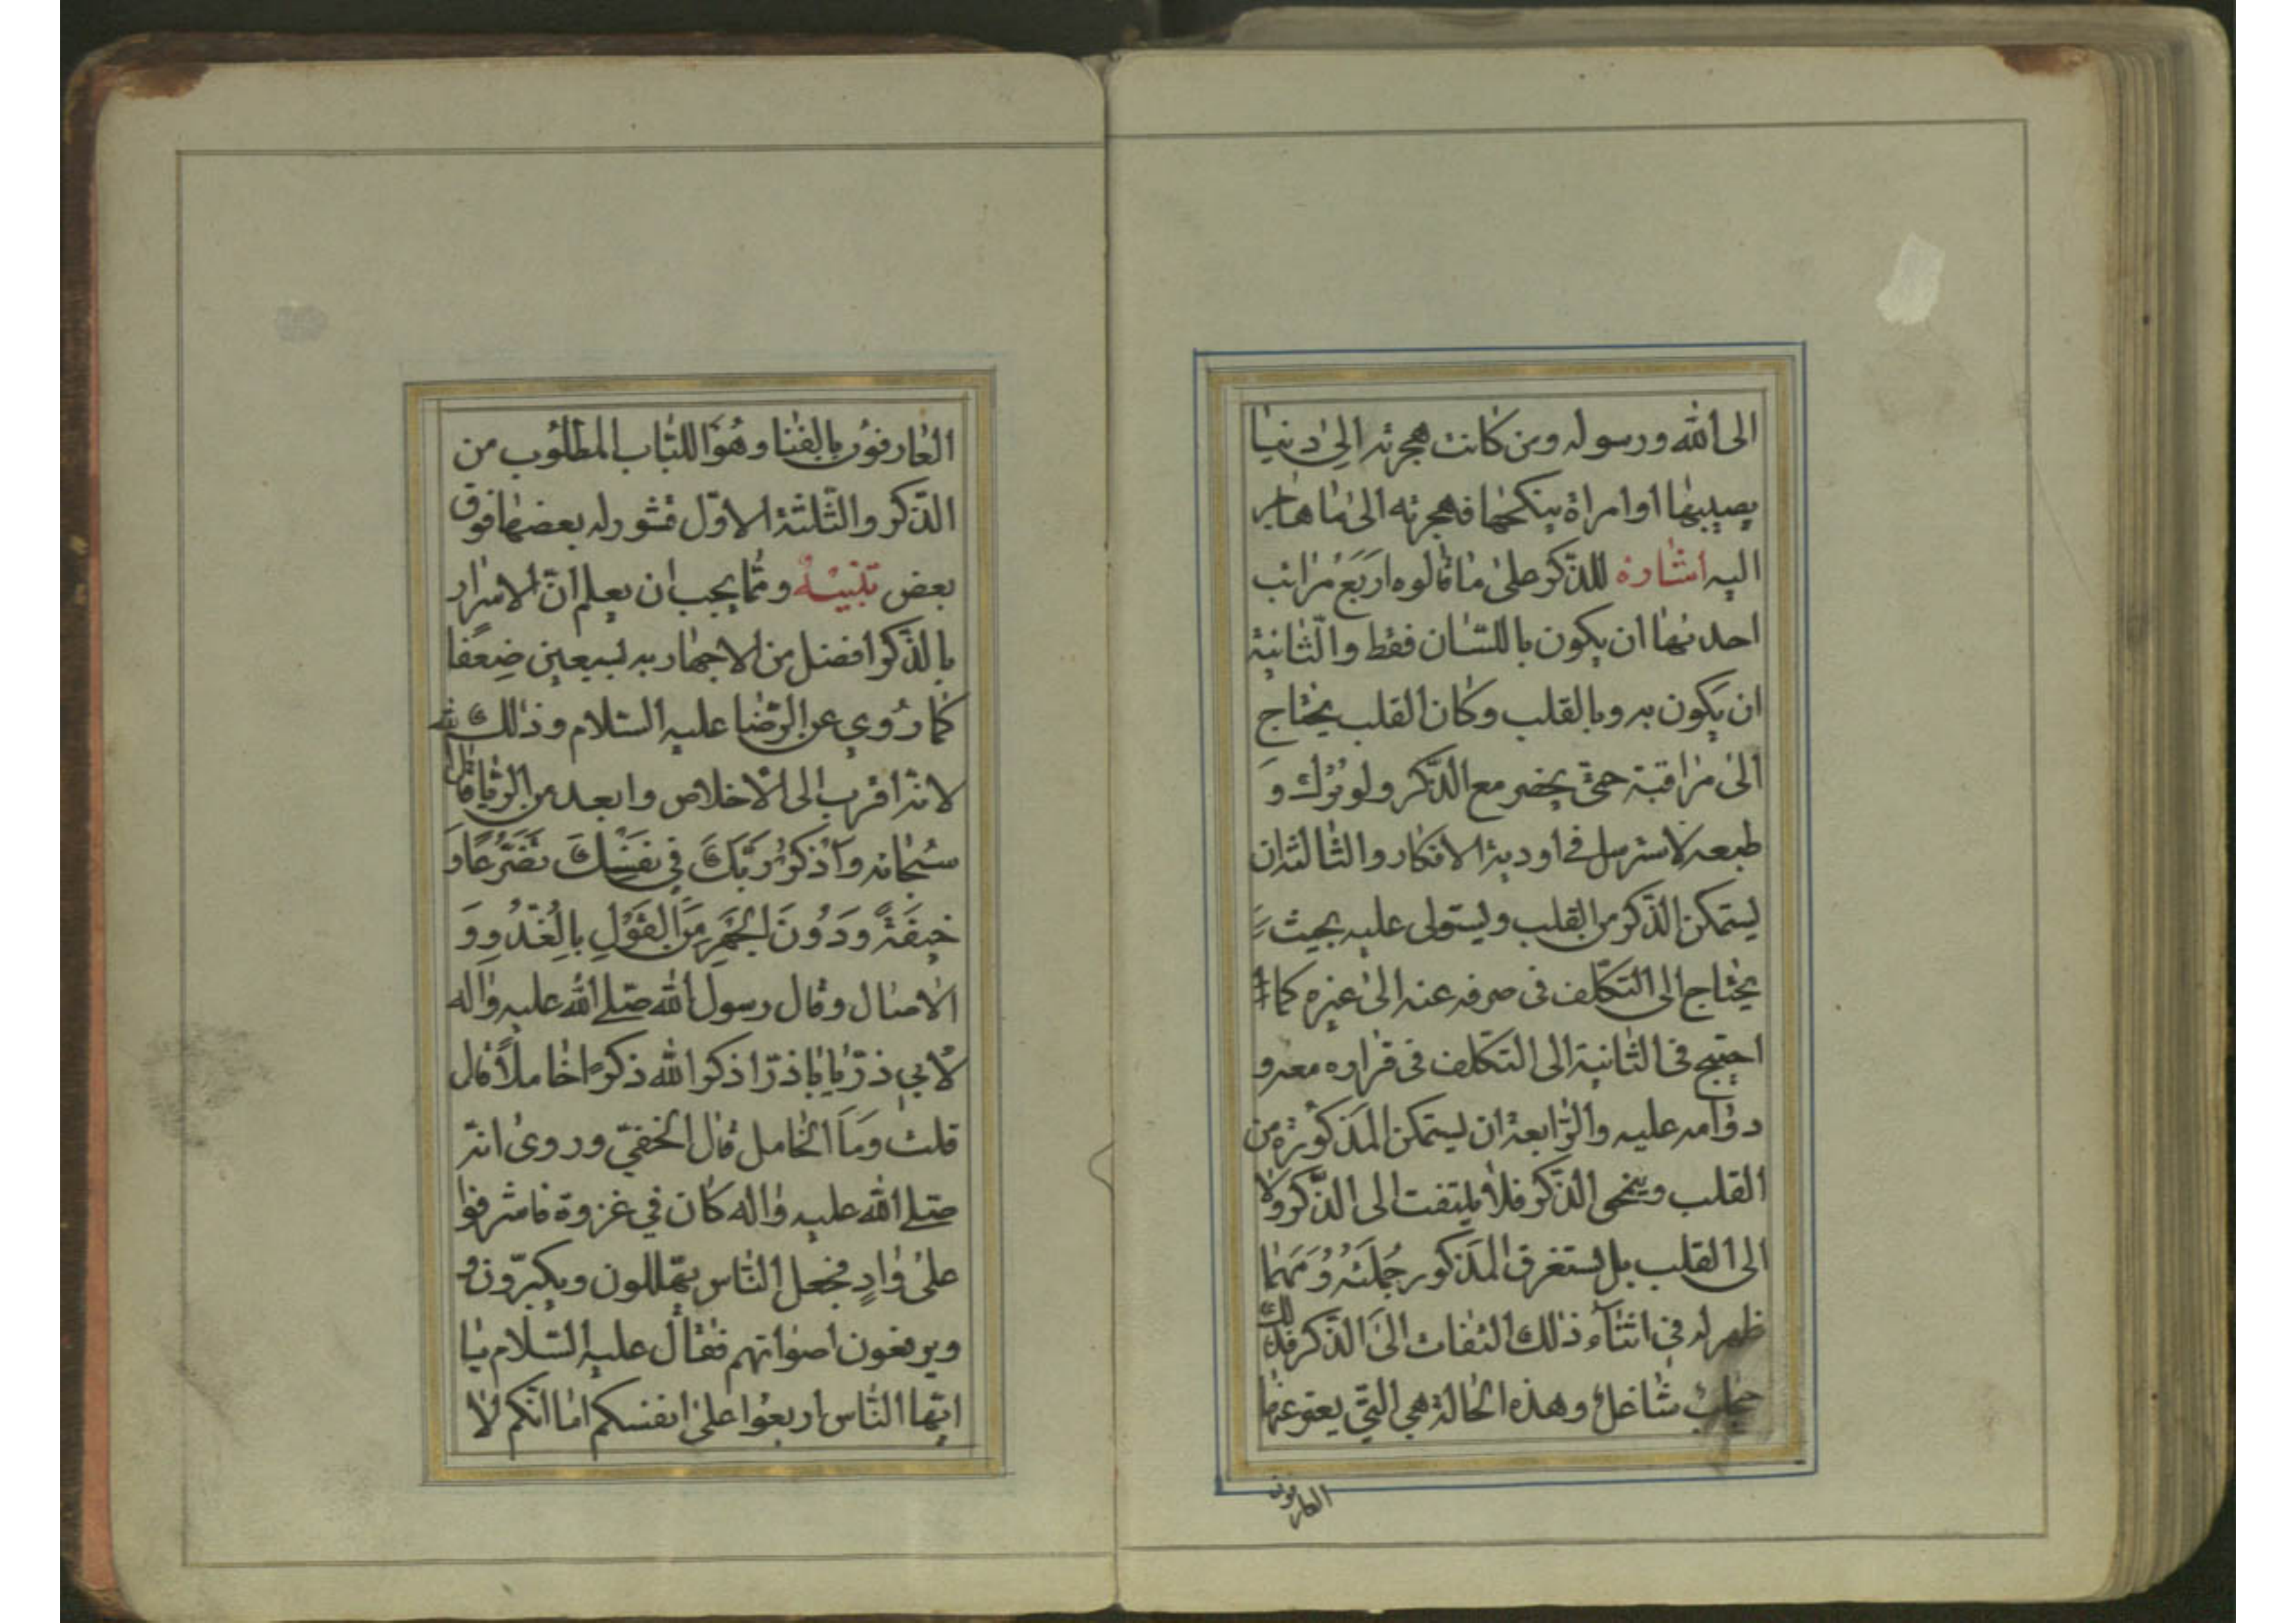 الى الله ورسوله ومن كانت هجرته الى دنيا
يصيبها او امراة ينكحها فهجرته الى ما هاجر
اليه اشارة للذكر على ما قالوه اربع مراتب
احدىها ان يكون باللسان فقط والثانية
ان يكون به وبالقلب وكان القلب يحتاج
الى مراقبة حتى يحضر مع الذكر ولو ترك و
طبعه لاسترسل في اودية الافكار والثالثة ان
يستمكن الذكر من القلب ويستولى عليه بحيث
يحتاج الى التكلف فى صرفه عنه الى غيره كما
احتيج فى الثانية الى التكلف فى قراره معه و
دوامه عليه والرابعة ان يستمكن المذكور من
القلب وينمحى الذكر فلا يلتفت الى الذكر ولا
الى القلب بل يستغرق المذكور جملته ومهما
ظهر له في اثناء ذلك التفات الى الذكر فذلك
حجاب شاغل وهذه الحالة هي التي يعبر عنها
العارفون
العارفون بالفنا وهو اللباب المطلوب من
الذكر والثلثة الاول قشور له بعضها فوق
بعض تنبيه ومما يجب ان يعلم ان الاسرار
بالذكر افضل من الاجهار به بسبعين ضعفا
كما روي عن الرضا عليه السلام وذلك
لانه اقرب الى الاخلاص وابعد من الريا قال الله
سبحانه وَاذْكُرْ رَبَّكَ فِي نَفْسِكَ تَضَرُّعًا وَ
خِيفَةً وَدُونَ الْجَهْرِ مِنَ الْقَوْلِ بِالْغُدُوِّ وَ
الاصال وقال رسول الله صلى الله عليه واله
لابي ذر يا با ذر اذكر الله ذكرا خاملا قال
قلت وما الخامل قال الخفي وروى انه
صلى الله عليه واله كان في غزوة فاشرفوا
على وادٍ فجعل الناس يهللون ويكبرون و
ويرفعون اصواتهم فقال عليه السلام يا
ايها الناس اربعوا على انفسكم اما انكم لا